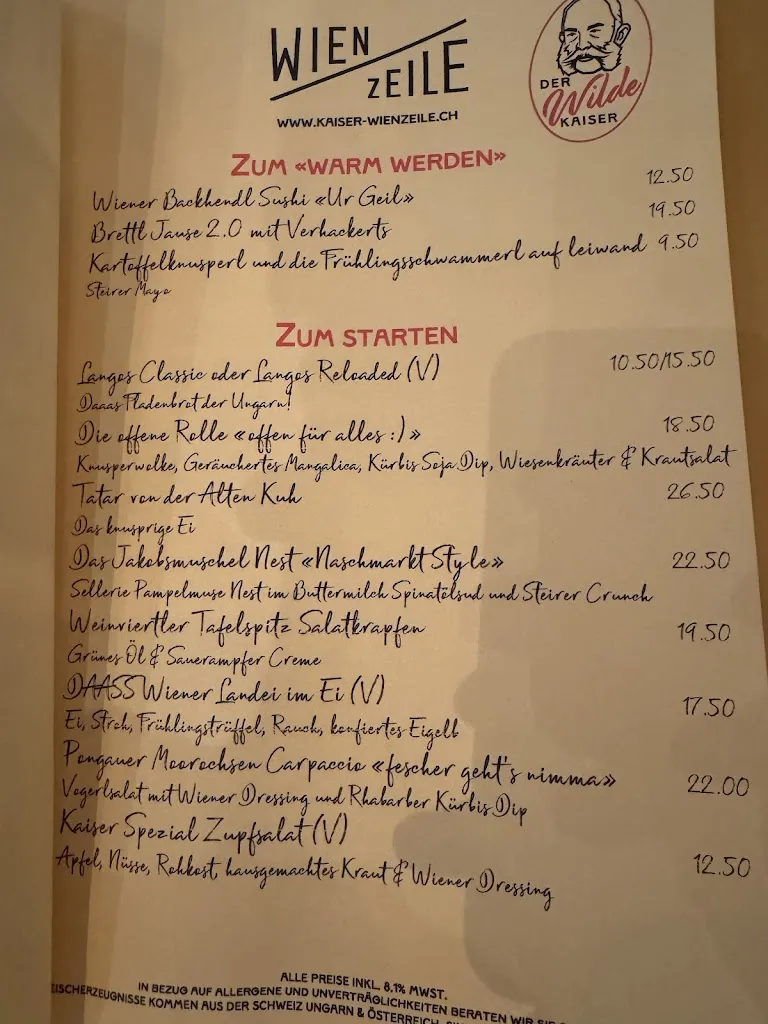 WIEN
ZEILE
WWW.KAISER-WIENZEILE.CH
DER
Wilde
KAISER
ZUM «WARM WERDEN»
Wiener Backhendl Sushi «Ur Geil» 12.50
Brettl Jause 2.0 mit Verhackerts 19.50
Kartoffelknusperl und die Frühlingsschwammerl auf leiwand 9.50
Steirer Mayo
ZUM STARTEN
Langos Classic oder Langos Reloaded (V) 10.50/15.50
Daaas Fladenbrot der Ungarn!
Die offene Rolle «offen für alles :)» 18.50
Knusperwolke, Geräuchertes Mangalica, Kürbis Soja Dip, Wiesenkräuter & Krautsalat
Tatar von der Alten Kuh 26.50
Das knusprige Ei
Das Jakobsmuschel Nest «Naschmarkt Style» 22.50
Sellerie Pampelmuse Nest im Buttermilch Spinatölsud und Steirer Crunch
Weinviertler Tafelspitz Salatkrapfen 19.50
Grünes Öl & Sauerampfer Creme
DAASS Wiener Landei im Ei (V) 17.50
Ei, Stroh, Frühlingstrüffel, Rauch, konfiertes Eigelb
Pongauer Moorochsen Carpaccio «fescher geht's nimma» 22.00
Vogerlsalat mit Wiener Dressing und Rhabarber Kürbis Dip
Kaiser Spezial Zupfsalat (V) 12.50
Apfel, Nüsse, Rohkost, hausgemachtes Kraut & Wiener Dressing
ALLE PREISE INKL. 8,1% MWST.
IN BEZUG AUF ALLERGENE UND UNVERTRÄGLICHKEITEN BERATEN WIR SIE
EISCHERZEUGNISSE KOMMEN AUS DER SCHWEIZ UNGARN & ÖSTERREICH,